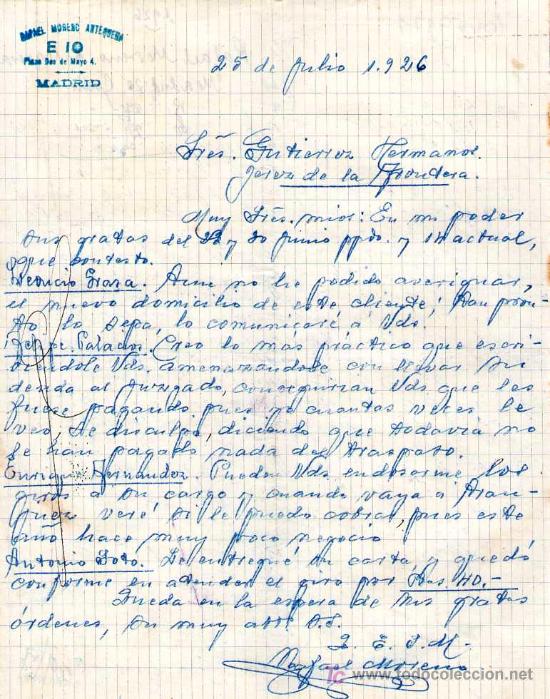 RAFAEL MORENO ANTEQUERA
E 10
Plaza Dos de Mayo 4.
MADRID
25 de Julio 1.926
Sres. Gutierrez Hermanos.
Jerez de la Frontera.
Muy Sres. mios: En mi poder
sus gratas del 22 y 30 Junio ppdo. y 14 actual,
que contesto.
Graza. Aun no he podido averiguar,
el nuevo domicilio de este cliente; tan pron-
to lo sepa, lo comunicaré a Vds.
Palacios. Creo lo mas práctico que escri-
biendole Vds. amenazandole con llevar su
deuda al Juzgado, conseguirian Vds que les
fuese pagando, pues yo cuantas veces le
veo, se disculpa, diciendo que todavia no
le han pagado nada del traspaso.
Enrique Hernandez. Pueden Vds endosarme los
giros a su cargo y cuando vaya a Aran-
juez veré si le puedo cobrar, pues este
año hace muy poco negocio
Antonio Soto. Le entregué su carta, y quedó
conforme en atender el giro por Ptas 40.-
Queda en la espera de sus gratas
órdenes, su muy att. S.S.
Q. E. S. M.
Rafael Moreno
todocoleccion.net